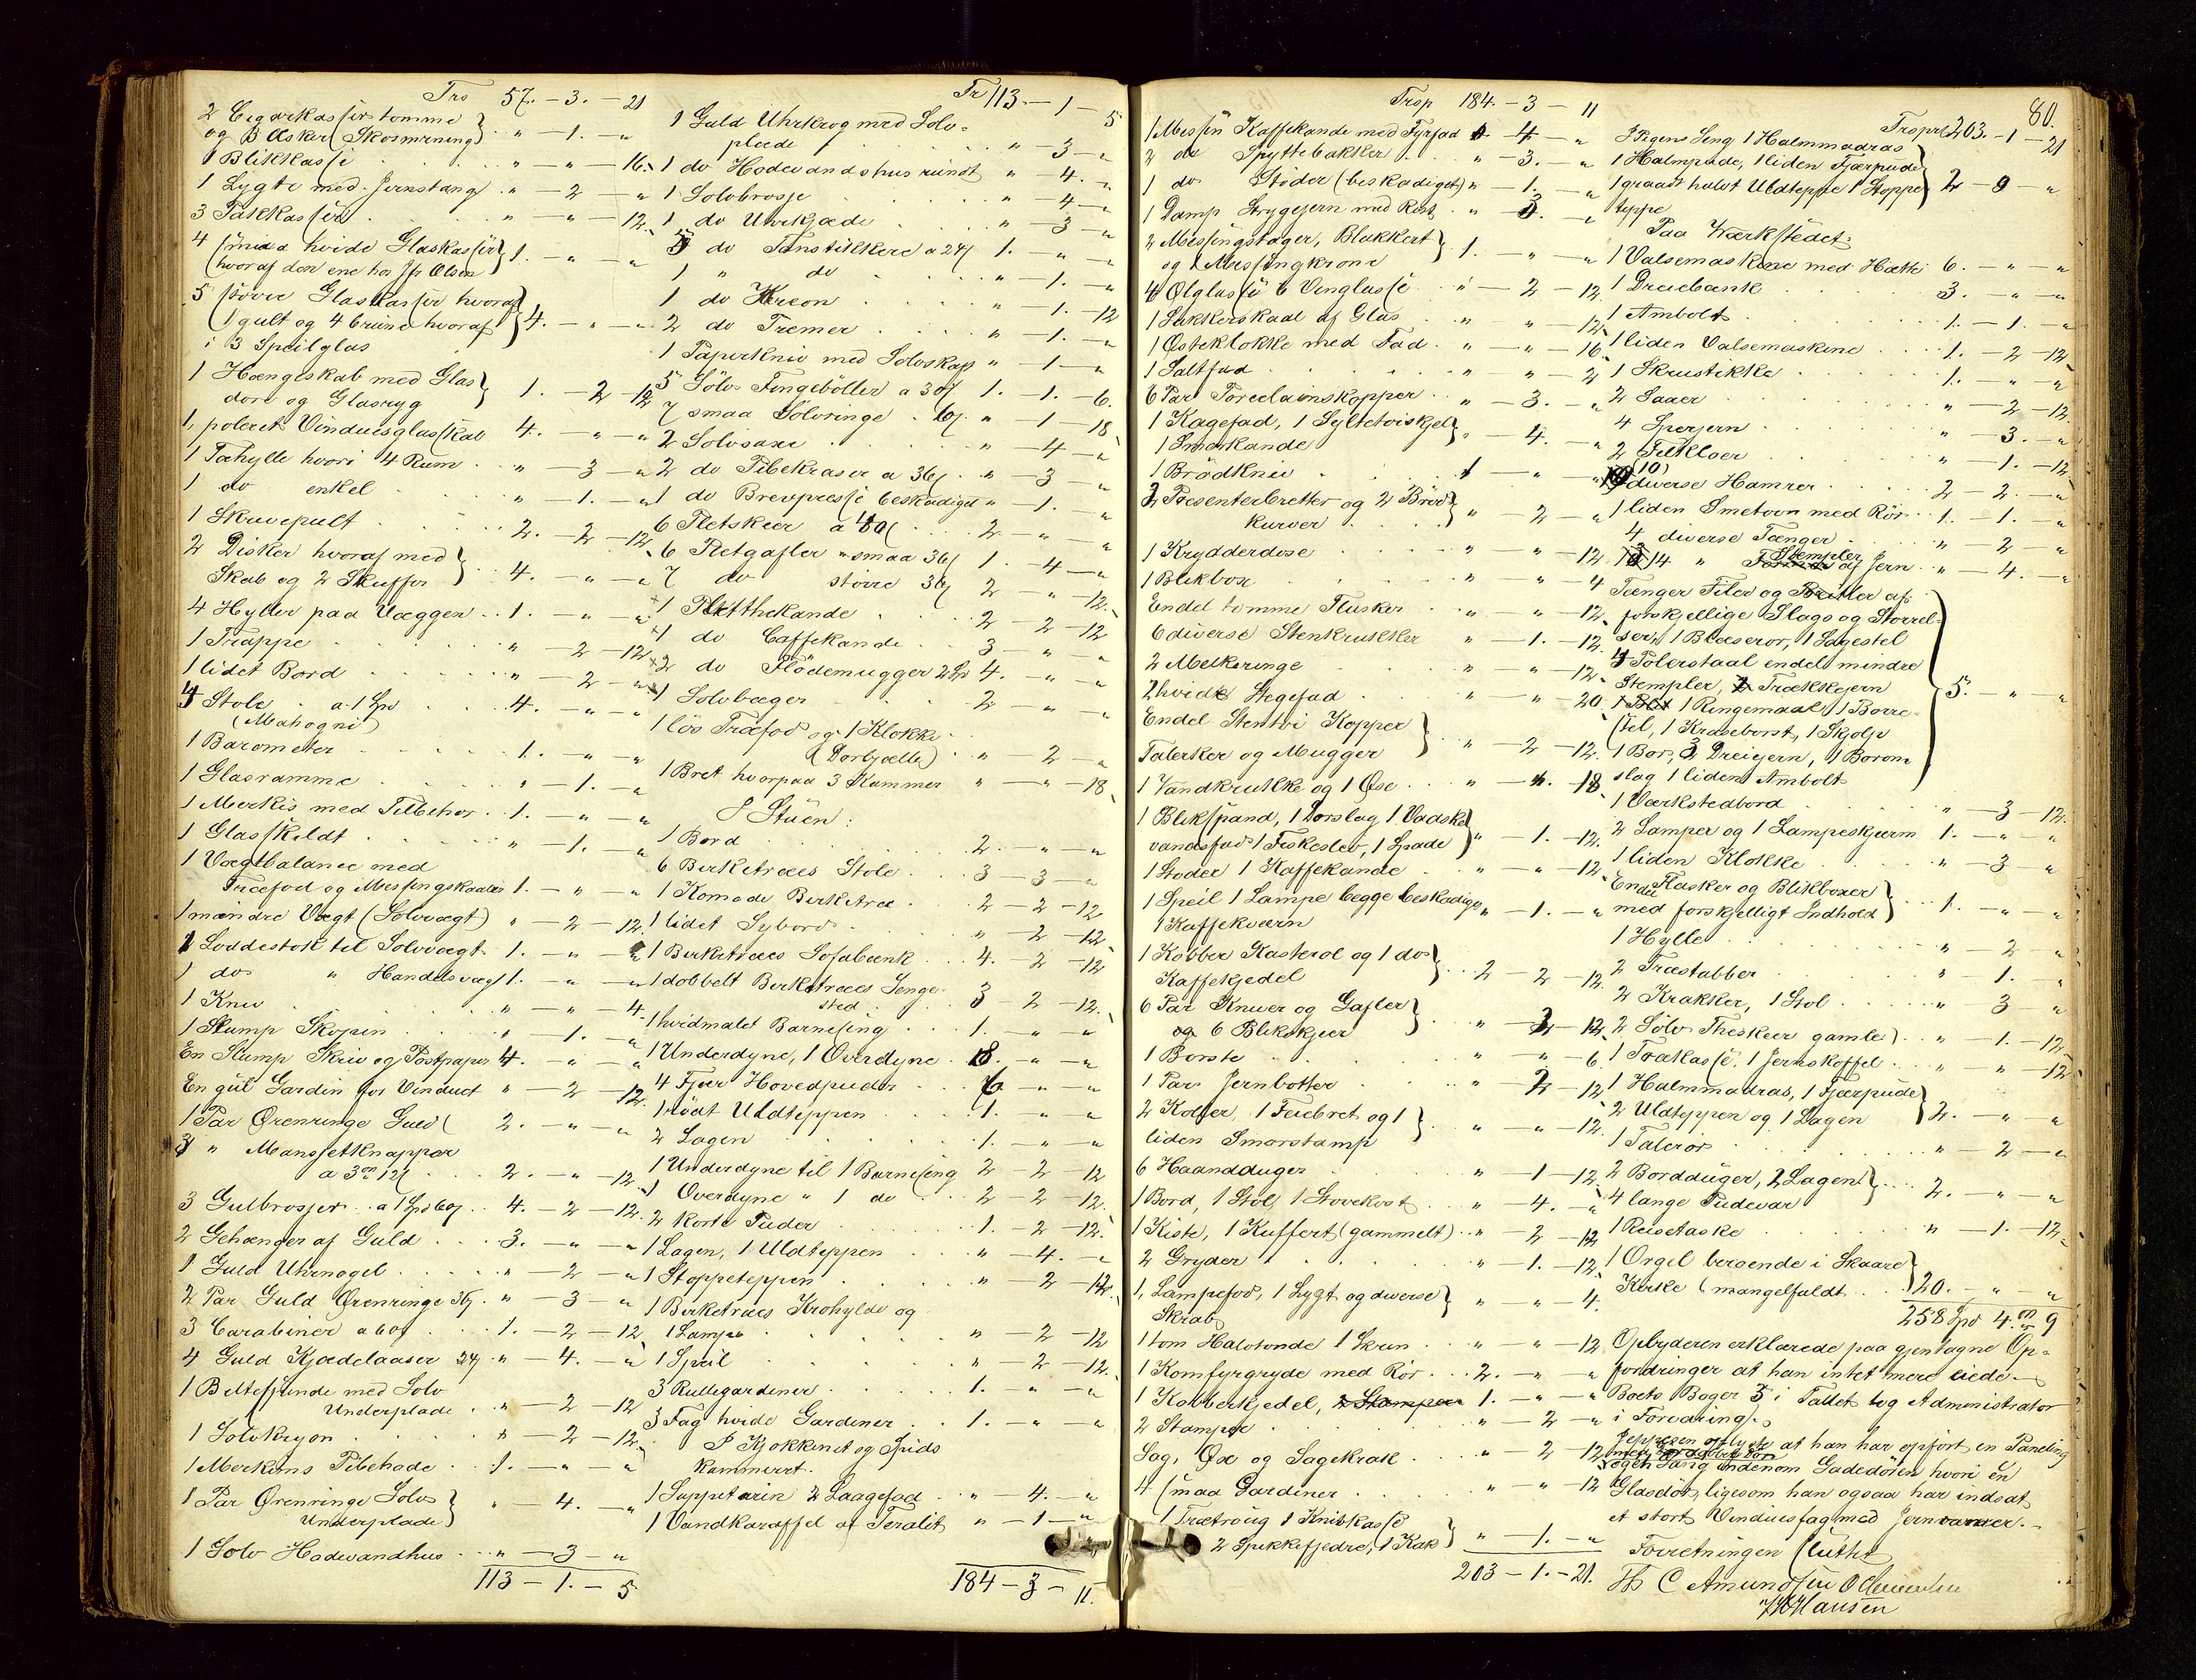 Trs 57. - 3. - 21
2 Cigarkasser tomme
og 3 Æsker (Skosmørning) " - 1. - "
1 Blikkasse " - " - 16.
1 Lygte med Jernstang " - 2 - "
3 Pakkasser " - " - 12.
4 smaa hvide Glaskasser
hvoraf den ene hos Js Olsen 1. - " - "
5 større Glaskasser hvoraf
1 gult og 4 brune hvoraf 4. - " - "
i 3 Speilglas
1 Hængeskab med Glas
dore og Glasryg 1. - 2 - 12
1 poleret Vinduesglasskab 4. - " - "
1 Tæhylle hvori 4 Rum " - 3 - "
1 do enkel " - 1. - "
1 Skrivepult 2. - 2 - 12
2 Disker hvoraf med
Skab og 2 Skuffer 4. - " - "
4 Hyller paa Væggen 1. - " - "
1 Trappe " - 2 - 12
1 lidet Bord " - 2 - "
4 Stole a 1 Spd 4. - " - "
(Mahogni)
1 Barometer 1. - " - "
1 Glasramme " - 1. - "
1 Merkis med Tilbehør 1. - " - "
1 Glasskildt " - 1. - "
1 Vægtbalance med
Træfod og Messingskaaler 1. - " - "
1 mindre Vægt (Solvvægt) " - 2 - 12
1 Loddestok til Solvvægt 1. - " - "
1 do " Handelsvægt 1. - " - "
1 Kniv " - " - 4.
1 Stump Skopin " - 1. - "
En Stump Skriv og Postpapir 4. - " - "
En gul Gardin for Vinduet " - 2 - 12
1 Par Ørenringe Guld 2. - " - "
3 " Manssetknapper
a 3 ort 12 s 2. - " - 12
3 Gulbrosjer a 1 Spd 60 s 4. - 2 - 12.
2 Gehænger af Guld 3. - " - "
1 Guld Uhrnøgel " - 2 - "
2 Par Guld Ørenringe 36 s " - 3 - "
3 Carabiner a 60 s 1. - 2 - 12
4 Guld Kjædelaaser 24 s " - 4. - "
1 Beltespænde med Solv
Underplade " - 2 - 12
1 Solvkryon " - 2 - 12.
1 Merkums Pibehode 1. - " - "
1 Par Ørenringe Solv
Underplade " 4. - "
1 Solv Hodevandhus " - 3 - "
113 - 1. - 5
Tr 113. - 1 - 5
1 Guld Uhrkrog med Solv-
plade " - 3 - "
1 do Hodevandshus rundt " - 4. - "
1 Solvbrosje " - 4 - "
1 do Uhrkjæde " - 3 - "
5 do Tanstikkere a 24 s 1. - " - "
1 " do " - 1. - "
1 do Kreon " 1. - 12
2 do Tremer " - 1. - "
1 Papirkniv med Solvskaft " 1 - "
5 Sölv Fingebøller a 30 s 1. - 1. - 6.
7 smaa Solvringe 18 s " - 1 - 18
2 Solvsaxe " - 4 - "
2 do Pibekraser a 36 s " - 3 - "
1 do Brevpresse beskadiget " - 1. - "
6 Pletskeer a 40 s 2 - " - "
6 Pletgafler smaa 36 s 1. - 4 - "
7 do større 36 s 2 - " - 12.
1 Pletthekande 2 - 2 - 12
1 do Caffekande 3 - " - "
2 do Flödemugger 2 Spd 4. - " - "
1 Solvbæger 2 - " - "
1 løs Træfod og 1 Klokke
(Dorbjælle) " 2 - "
1 Bret hvorpaa 3 Kammer " - " - 18
I Stuen:
1 Bord 2. - " - "
6 Birketræes Stole 3 - 3 - "
1 Komode Birketræ 2 - 2 - 12
1 lidet Sybord " - 2 - 12
1 Birketræes Sofabænk 4. - 2 - 12
1 dobbelt Birketræes Senge-
sted 3 - 2 - 12.
1 hvidmalet Barneseng 1. - " - "
1 Underdyne, 1 Overdyne 8. - " - "
4 Fjær Hovedpuder 6 - " - "
1 rødt Uldteppen 1. - " - "
2 Lagen 1. - " - "
1 Underdyne til 1 Barneseng 2 - 2 12
1 Overdyne " 1 do 2 - 2 - 12.
2 korte Puder 1. - 2 - 12.
1 Lagen, 1 Uldteppen " - 4. - "
1 Stoppeteppen " - 2 - 12.
1 Birketræes Krohylde og
1 Lampe " - 2 - 12
1 Speil " - 2 - 12.
3 Rullegardiner 1. - " - "
3 Fag hvide Gardiner 1. - " - "
I Kjøkkenet og Spids
kammeret.
1 Suppeterin 2 Laagefad " - 4. - "
1 Vandkaraffel af Teralit " - 1 - "
184 - 3 - 11.
Trsp 184. - 3 - 11
1 Messin Kaffekande med Fyrfad " 4 - "
2 do Spyttebakker " - 3. - "
1 do Støder (beskadiget) " - 1. - "
1 Damp Strygejern med Rist " - 3. - "
2 Messingstager, Blakkert
og 1 Messingkrone 1. - " - "
4 Ølglasse 6 Vinglasse " - 2 - 12.
1 Sukkerskaal af Glas " " - 12
1 Osteklokke med Fad " - " - 16
1 Saltfad " - " - 2
6 Par Porcelainskopper " - 3. - "
1 Kagefad, 1 Syltetøiskjel
1 Smørkande " - 4. - "
1 Brødkniv 1 - " - "
2 Presenterbretter og 2 Brød
kurver " - 2 - "
1 Krydderdose " - " - 12
1 Blikbox " - " - 4
Endel tomme Flasker " - " - 12
6 diverse Stenkrukker " - 1. - 12
2 Melkeringe " - " - 12
2 hvide Stegefad " - " - 20
Endel Stentøi Kopper
Talerker og Mugger " - 2 - 12.
1 Vandkrukke og 1 Øse " - " - 18
1 Blikspand, 1 Dorslag 1 Vadske
vandsfad 1 Fiskeslev, 1 Spade " - 1. - 12.
1 Stoder 1 Kaffekande " - " - 12
1 Speil 1 Lampe begge beskadiget
1 Kaffekværn " - 1. - "
1 Kobber Kasterol og 1 do
Kaffekjedel 2 - 2 - 12.
6 Par Kniver og Gafler
og 6 Blikskjeer " - 2 - 12
1 Børste " - " - 6
1 Par Jernbøtter " - 2 - 12
2 Koster, 1 Feiebret og 1
liden Smørstamp " - " - 12.
6 Haandduger " - 1 - 12
1 Bord, 1 Stol, 1 Stovekost " - 4. - "
1 Kiste, 1 Kuffert (gammelt) " - 2 - 12
2 Gryder " - 1. - 12
1 Lampefod, 1 Lygt og diverse
Skrab " - " - 4.
1 tom Halvtonde 1 Skrin " - " - 12
1 Komfyrgryde med Rör 2. - " - "
1 Kobberkjedel, 2 Stamper 1. - " - "
2 Stampe " - 2 - "
Sag, Øx og Sagekrak " - 2 - 12
4 smaa Gardiner " - " - 12
1 Trætroug 1 Knivkasse
2 Spekkefjedre, 1 Kak " - 1. - "
203 - 1. - 21.
80.
Trsprt 203. - 1 - 21
I Pigens Seng 1 Halmmadras
1 Halmpude, 1 liden Fjærpude
1 graadt halvt Uldteppe 1 Stoppe 2 - 9 - "
teppe
Paa Værkstedet:
1 Valsemaskine med Hatte 6. - " - "
1 Dreiebænk 3. - " - "
1 Ambolt 1. - 1. - "
1 liden Valsemaskine 1. - 2 - 12
1 Skrustikke 1. - " - "
2 Saxer " - 2 - 12.
4 Sperjern " - 3. - "
2 Filkloer " - 1. - 12
(10) diverse Hamrer 2 - 2. - "
1 liden Smeteovn med Rör 1. - 1. - "
4 diverse Tænger " - 2 - "
14 " Stempler af Jern " - 4. - "
Tænger Filer og Feiller af
forskjellige Slags og Størrel-
ser, 1 Blæserør, 1 Sagestel
4 Polerstaal endel mindre
Stempler, 2 Trækkejern 5. - " - "
1 Ringemaal, 1 Borre-
stel, 1 Krasebørst, 1 Skjolp
1 Bor, 3 Dreijern, 1 Borom
slag 1 liden Ambolt
1 Værkstedbord " - 3 - 12.
2 Lamper og 1 Lampeskjærm 1. - " - "
1 liden Klokke " - 3 - "
Endel Flasker og Blikboxer
med forskjelligt Indhold 1. - " - "
1 Hylle " - 2 - "
2 Træstabber " - 1. - "
2 Krakker, 1 Stol " 3 - "
2 Sölv Theskeer gamle " - 1. - 12
1 Trækasse, 1 Jernskoffel " - " - 12
1 Halmmadras, 1 Fjærpude
2 Uldteppen og 1 Lagen 2. - " - "
1 Talerør " - 2 - "
2 Borddüger, 2 Lagen
4 lange Pudevar 2. - " - "
1 Reisetaske " - 1. - 12
1 Orgel beroende i Skaare
Kirke (mangelfuldt 20. - " - "
258 Spd 4. ort 9
Opbyderen erklærede paa gjentagne Op-
fordringer at han intet mere eiede
Boets Bøger 5 i Tallet tog Administrator
i Forvaring.
Jeppesen oplyste at han har opført en Paneling
og en Gang indenom Gadedøren hvori en
Glasdör, ligesom han ogsaa har indsat
et stort Vinduesfag med Jernrammer.
Forretningen sluttet
Th C Amundsen O Clemensen
HHansen